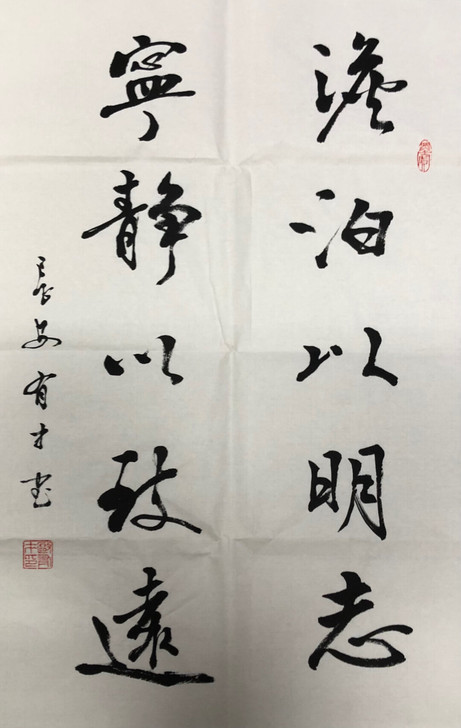 澹泊以明志
寧靜以致遠
長安有才書